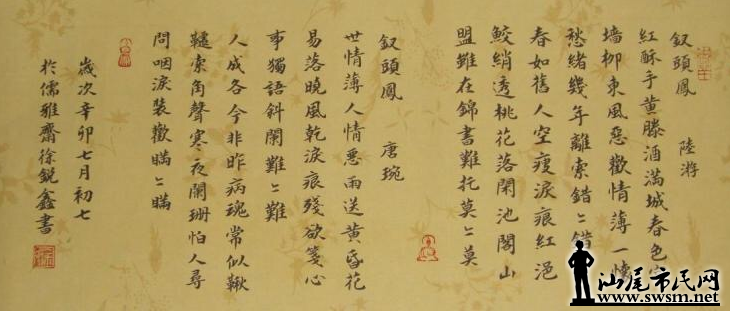 釵頭鳳　陸游
紅酥手黃縢酒滿城春色宮
墻柳東風惡歡情薄一懷
愁緒幾年離索錯〻錯
春如舊人空瘦淚痕紅浥
鮫綃透桃花落閑池閣山
盟雖在錦書難托莫〻莫
釵頭鳳　唐琬
世情薄人情惡雨送黃昏花
易落曉風乾淚痕殘欲箋心
事獨語斜闌難〻難
人成各今非昨病魂常似鞦
韆索角聲寒夜闌珊怕人尋
問咽淚裝歡瞞〻瞞
歲次辛卯七月初七
於儒雅齋徐銳鑫書
汕尾市民网
www.swsm.net